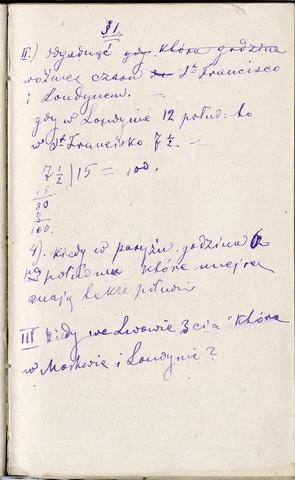 31.
II.) odgadnąć gdy która godzina
różnicę czasu St Francisco
i Londynem.
gdy w Londynie 12 połud: to
w St Francisko 7 1/2. —
7 1/2 | 15 = 100.
15
30
100.
4). Kiedy w paryżu godzina
południa które miejsca
mają także południe
III Kiedy we Lwowie 3cia która
w Moskwie i Londynie?